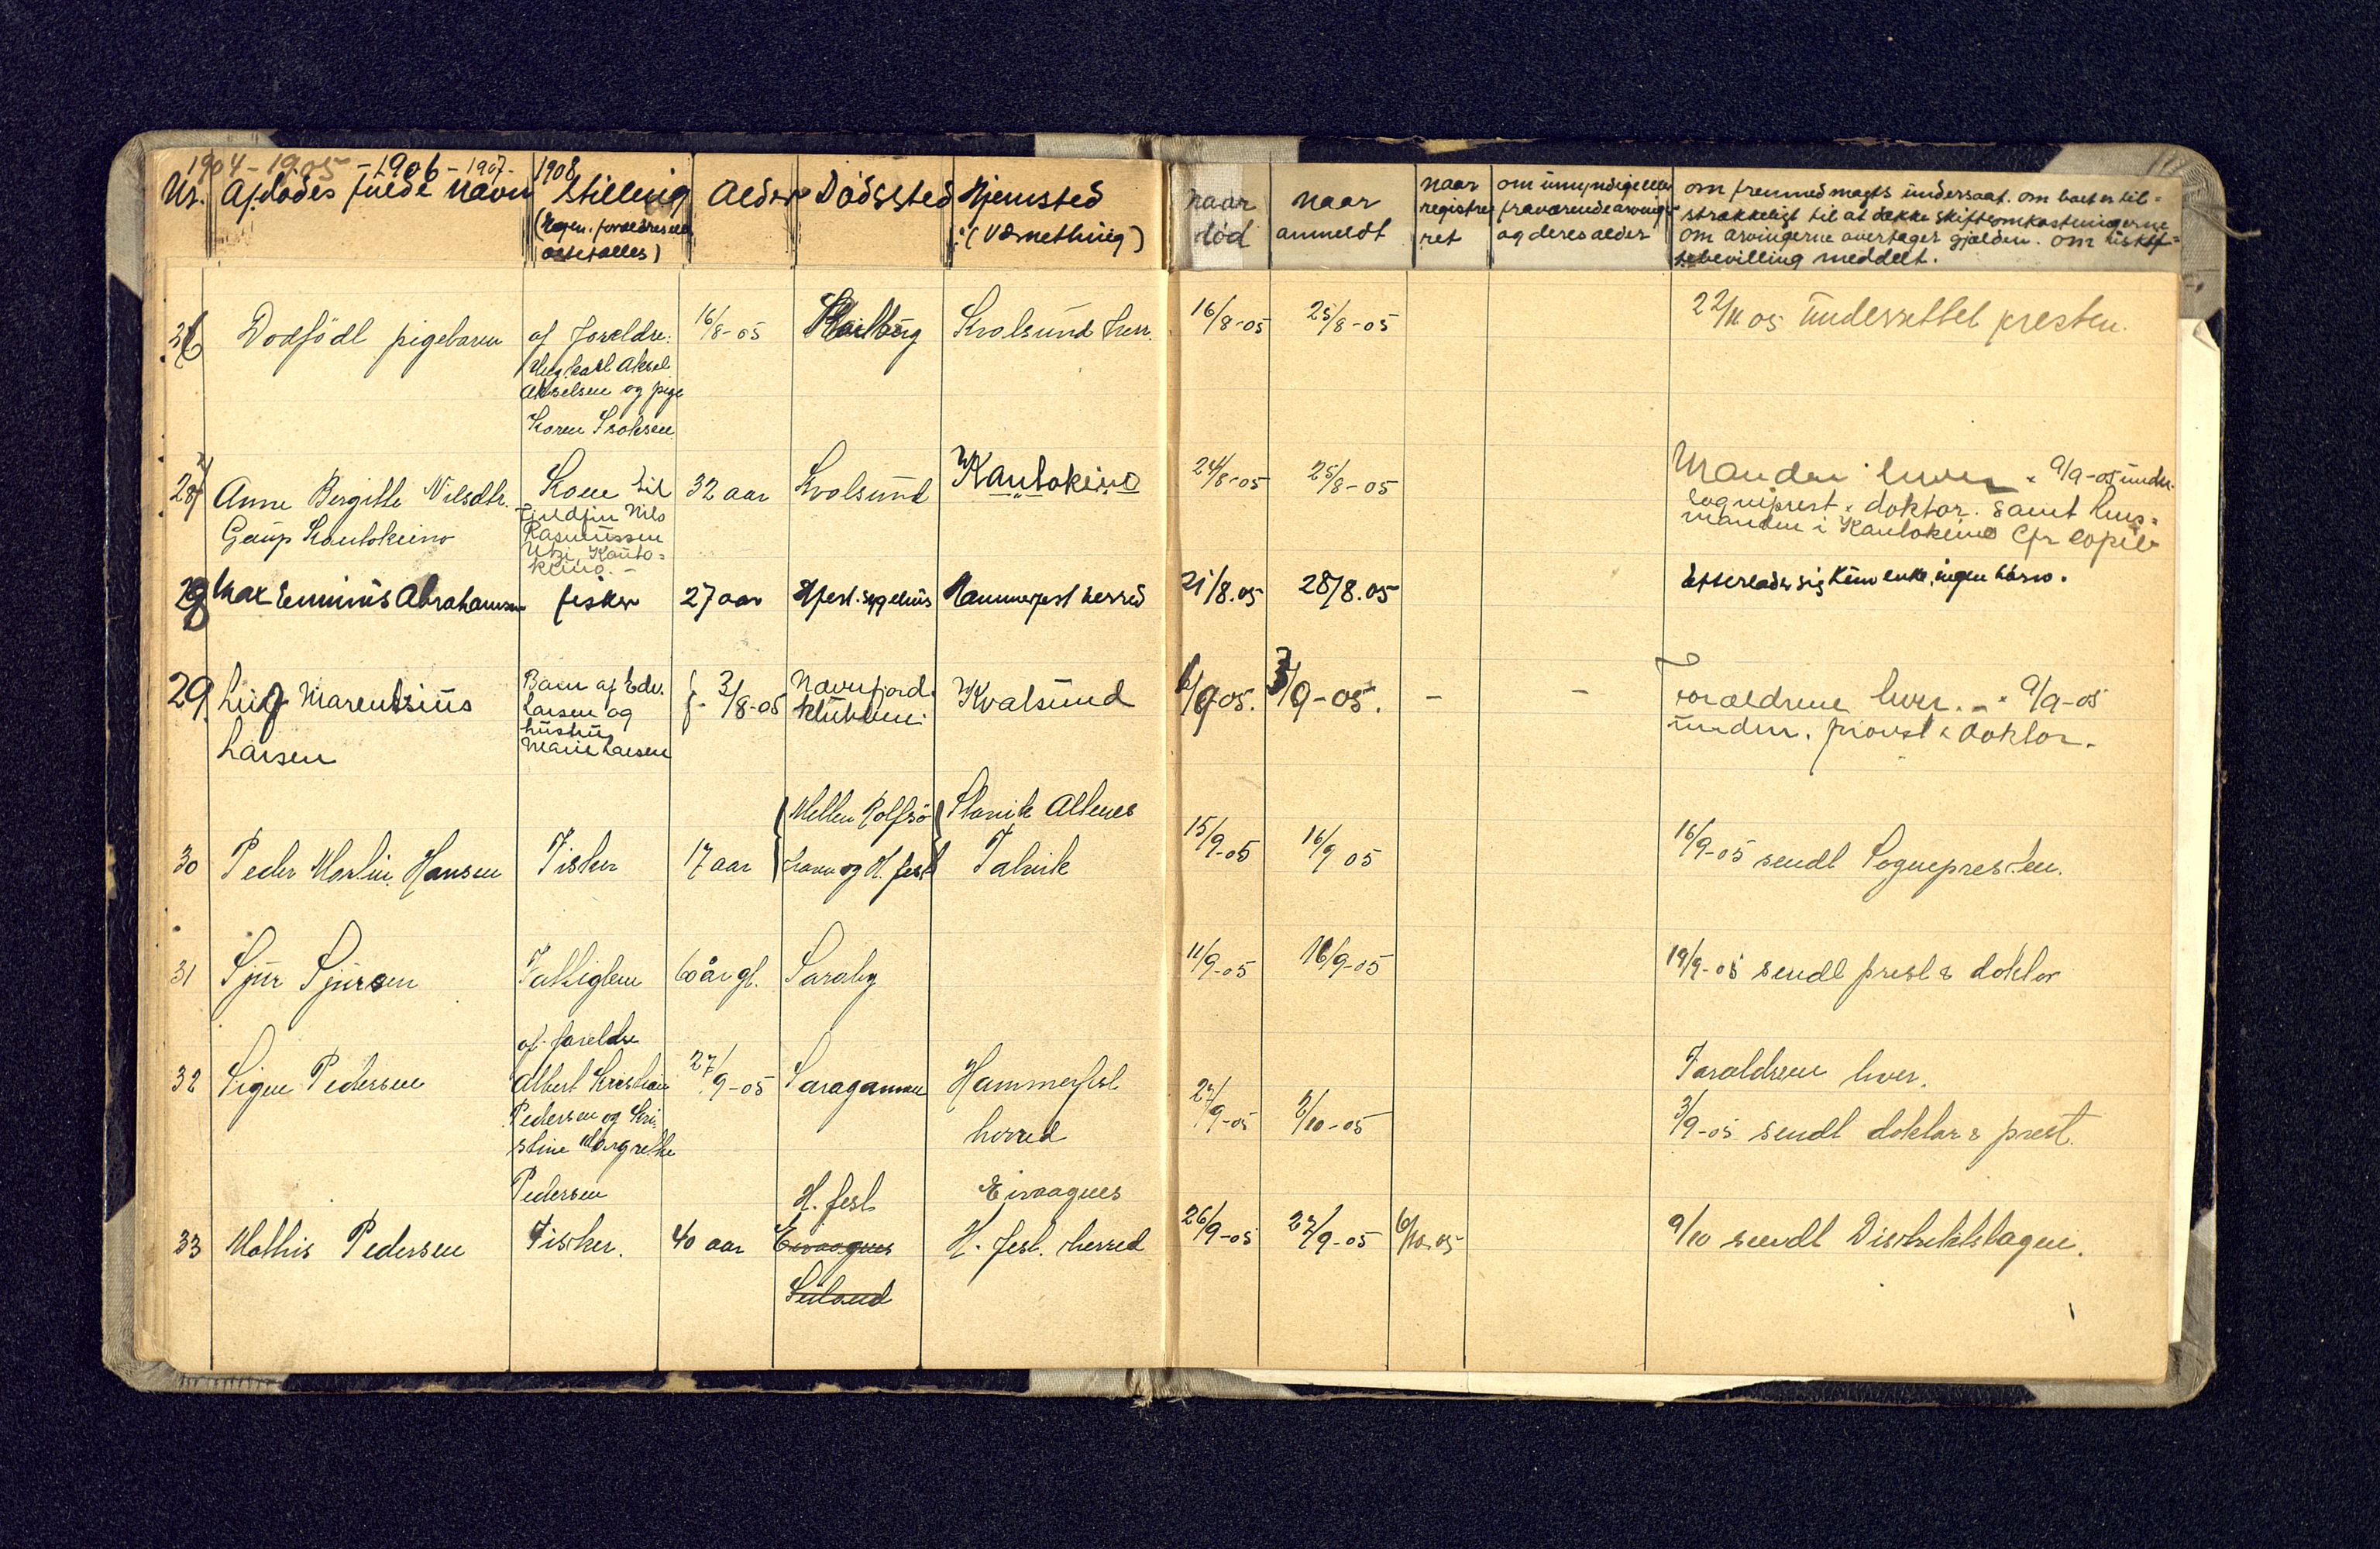 1904-1905-1906-1907-1908
Nr. Afdødes fulde Navn Stilling Alder Dødssted Hjemsted
(Egen. forældres ell.
(Værnething)
naar død
naar anmeldt
naar registreret
om umyndige eller fraværende arvinger og deres alder
om fremmed magts undersaat. om boet er til=
strækkeligt til at dække skifteomkostningerne
om arvingerne overtager gjælden. om uskif=
tebevilling meddelt.
26 Dødfödt pigebarn af foreldre: 16/8-05 Kvalsund herr. 16/8-05 25/8-05 22/11 05 underrettet presten.
Ung.karl Aksel
Akselsen og pige
Karen Isaksen
27 Anne Bergitte Nilsdtr. Kone til 32 aar Kvalsund Kautokeino 24/8-05 25/8-05 Manden lever. 9/9-05 under.
Gaup Kautokeino Fjeldfin Nils sogneprest & doktor. samt lens=
Rasmussen manden i Kautokeino Cfr copieb
Utzi, Kauto=
keino. -
28 Max Emmius Abrahamsen fisker 27 aar Hfest. sygehus Hammerfest herred 21/8.05 28/8.05 Efterlader sig kun enke, ingen børn.
29. Marentsius Barn af Edv. f. 3/8-05 Navnfjord Kvalsund 6/9 05. 9-05. - - Forældrene lever. - 9/9-05
Larsen Larsen og klubben under. provst & doktor.
hustru
Marie Larsen
{Mellem Rolfsö {Slavik Altenes
30 Peder Martin Hansen Fisker 17 aar havn og H. fest Talvik 15/9-05 16/9 05 16/9-05 sendt Sognepresten.
31 Sjur Sjursen Fattiglem 60 år gl. Saraby 11/9-05 16/9-05 19/9-05 sendt prest & doktor
af. foreldre
32 Signe Pedersen Albert Kristian 27/9-05 Saragammen Hammerfest 27/9-05 2/10-05 Foraldrene lever.
Pedersen og Kri- herred 3/9-05 sendt doktor & prest.
stine Margrethe
Pedersen H. fest Eivaagnes
33 Mathis Pedersen Fisker. 40 aar Eivaagnes H. fest. herred 26/9-05 27/9-05 6/10.05 9/10 sendt Distriktslægen.
Seiland